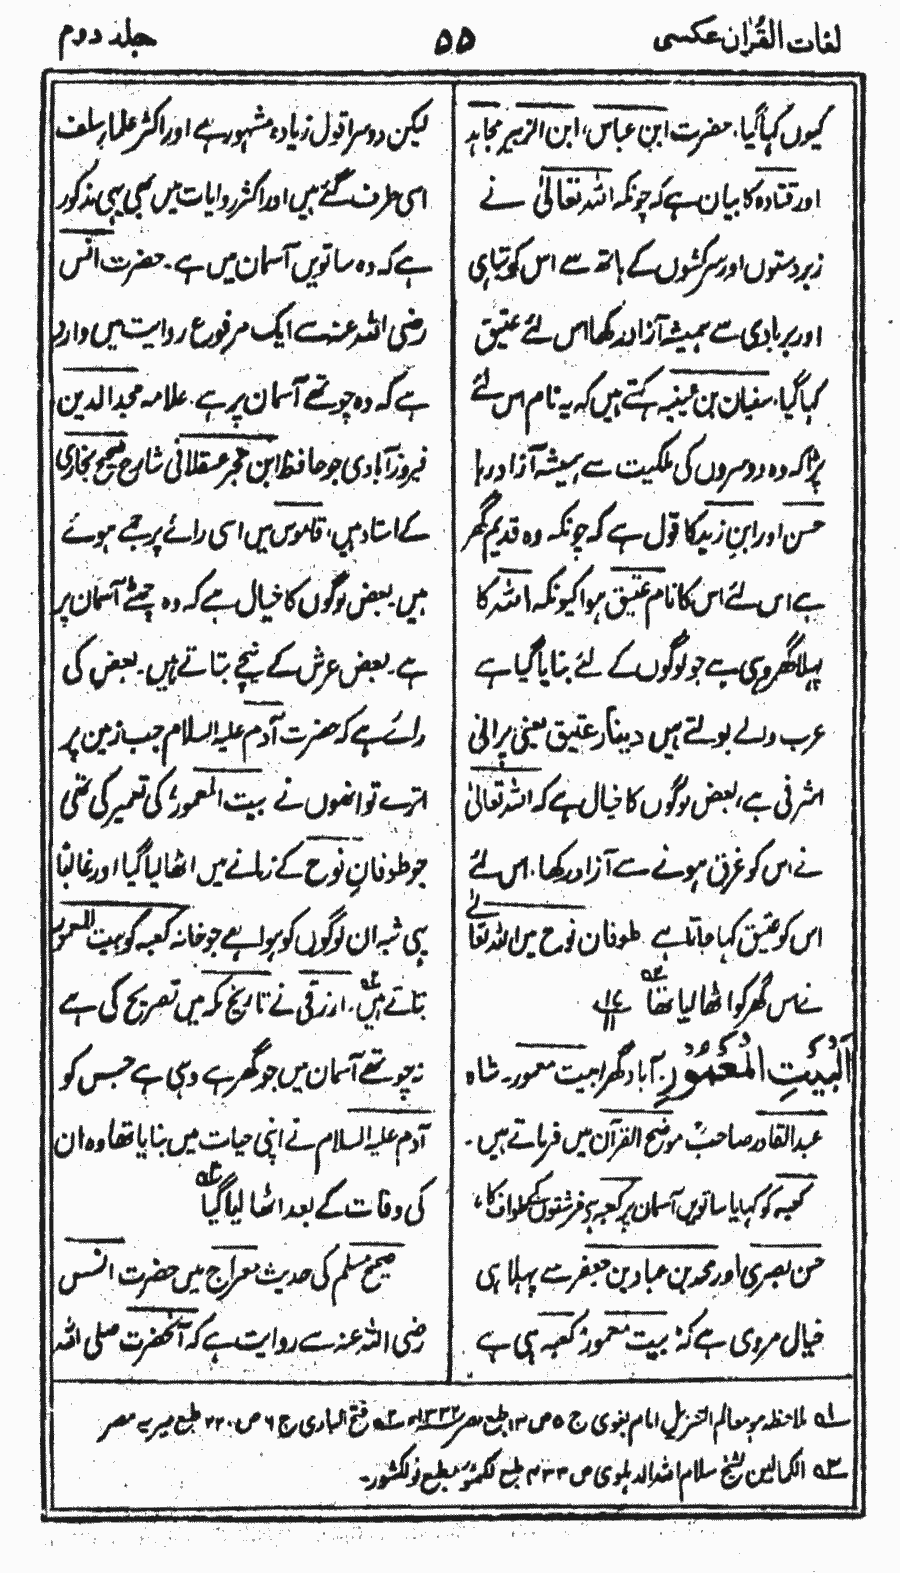 لغات القرآن عکسی
۵۵
جلد دوم
کیوں کہا گیا، حضرت ابن عباس، ابن الزبیر مجاہد
اور قتادہ کا بیان ہے کہ چونکہ اللہ تعالیٰ نے
زبردستوں اور سرکشوں کے ہاتھ سے اس کو تباہی
اور بربادی سے ہمیشہ آزاد رکھا اس لئے عتیق
کہا گیا، سفیان بن عیینہ کہتے ہیں کہ یہ نام اس لئے
پڑا کہ وہ دوسروں کی ملکیت سے ہمیشہ آزاد رہا
حسن اور ابن زید کا قول ہے کہ چونکہ وہ قدیم گھر
ہے اس لئے اس کا نام عتیق ہوا کیونکہ اللہ کا
پہلا گھر وہی ہے جو لوگوں کے لئے بنایا گیا ہے
عرب والے بولتے ہیں دینار عتیق یعنی پرانی
اشرفی ہے، بعض لوگوں کا خیال ہے کہ اللہ تعالیٰ
نے اس کو غرق ہونے سے آزاد رکھا۔ اس لئے
اس کو عتیق کہا جاتا ہے طوفان نوح میں اللہ تعالے
نے اس گھر کو اٹھا لیا تھا
اَلْبَیْتِ الْمَعْمُوْرِ۔ آباد گھر، بیت معمور۔ شاہ
عبدالقادر صاحبؒ موضح القرآن میں فرماتے ہیں۔
کعبہ کو کہا یا ساتویں آسمان پر کعبہ ہے فرشتوں کے طواف کا،
حسن بصری اور محمد بن عباد بن جعفر سے پہلا ہی
خیال مروی ہے کہ بیت معمور کعبہ ہی ہے
لیکن دوسرا قول زیادہ مشہور ہے اور اکثر علماء سلف
اسی طرف گئے ہیں اور اکثر روایات میں بھی یہی مذکور
ہے کہ وہ ساتویں آسمان میں ہے۔ حضرت انس
رضی اللہ عنہ سے ایک مرفوع روایت میں وارد
ہے کہ وہ چوتھے آسمان پر ہے۔ علامہ مجد الدین
فیروز آبادی جو حافظ ابن حجر عسقلانی شارح صحیح بخاری
کے استاد ہیں، قاموس میں اسی رائے پر جمے ہوئے
ہیں۔ بعض لوگوں کا خیال ہے کہ وہ چھٹے آسمان پر
ہے۔ بعض عرش کے نیچے بتاتے ہیں۔ بعض کی
رائے ہے کہ حضرت آدم علیہ السلام جب زمین پر
اترے تو انھوں نے بیت المعمور کی تعمیر کی تھی
جو طوفان نوح کے زمانے میں اٹھا لیا گیا اور غالباً
یہی شبہ ان لوگوں کو ہوا ہے جو خانہ کعبہ کو بیت المعمور
بتاتے ہیں۔ ازرقی نے تاریخ مکہ میں تصریح کی ہے
کہ چوتھے آسمان میں جو گھر ہے وہی ہے جس کو
آدم علیہ السلام نے اپنی حیات میں بنایا تھا وہ ان
کی وفات کے بعد اٹھا لیا گیا
صحیح مسلم کی حدیث معراج میں حضرت انس
رضی اللہ عنہ سے روایت ہے کہ آنحضرت صلی اللہ
ملاحظہ ہو معالم التنزیل امام بغوی ج ۵ ص ۱۳ طبع مصر فتح الباری ج ۶ ص ۲۲۰ طبع میریہ مصر
الکمالین للشیخ سلام اللہ الدہلوی ص ۴۳۳ طبع لکھنؤ مطبع نولکشور۔